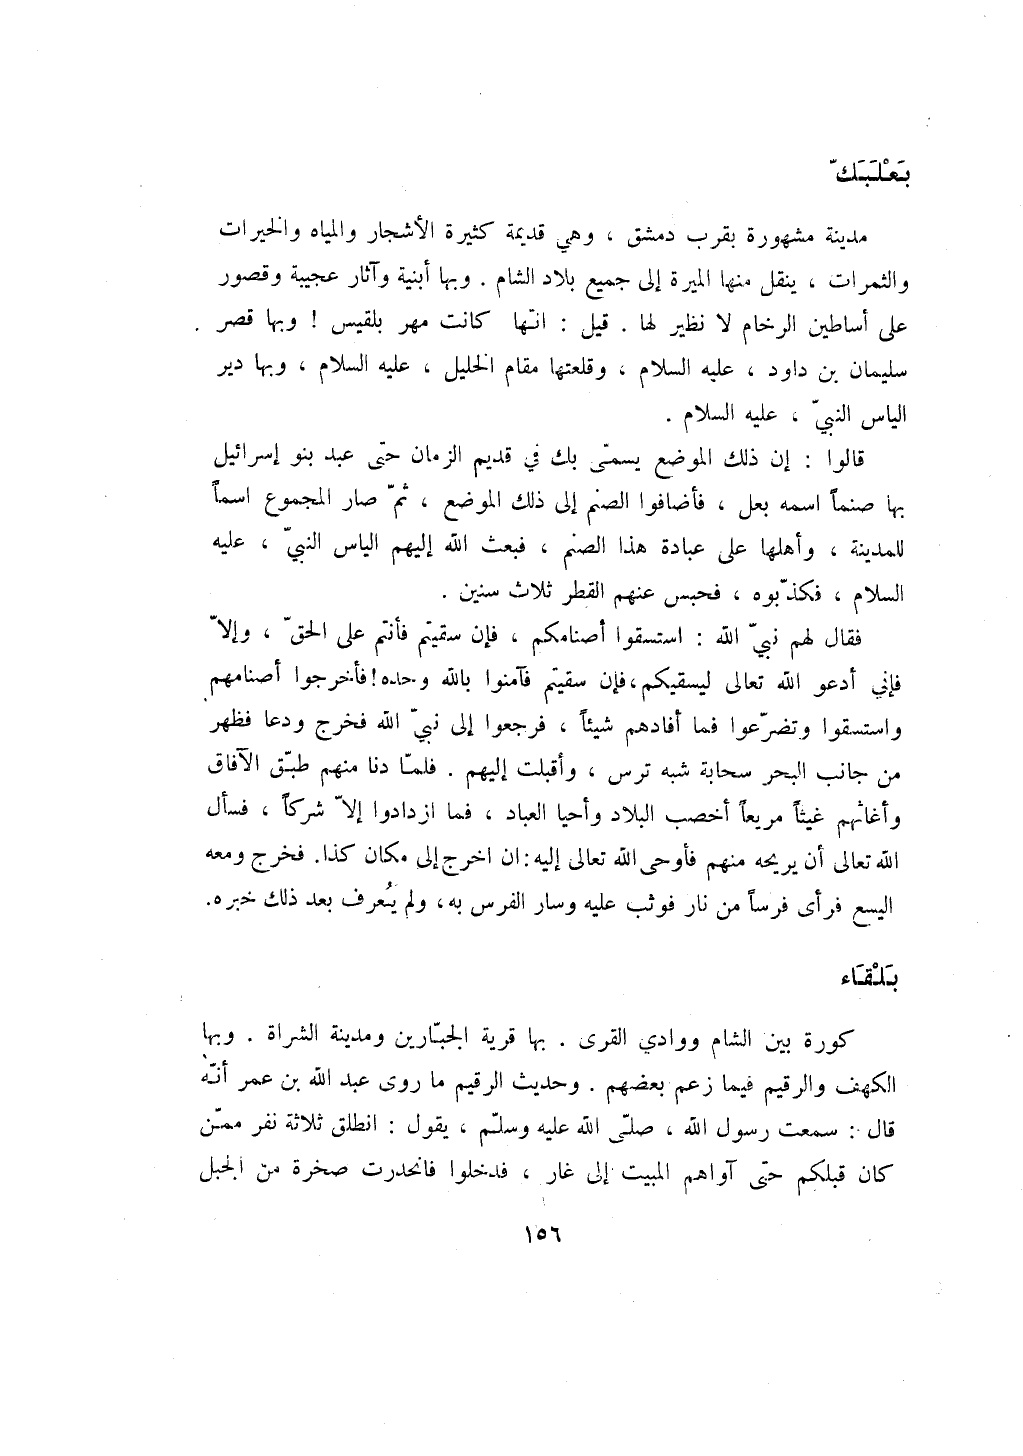 بَعْلَبَكّ
مدينة مشهورة بقرب دمشق ، وهي قديمة كثيرة الأشجار والمياه والخيرات
والثمرات ، ينقل منها الميرة إلى جميع بلاد الشام . وبها أبنية وآثار عجيبة وقصور
على أساطين الرخام لا نظير لها . قيل : انّها كانت مهر بلقيس ! وبها قصر
سليمان بن داود ، عليه السلام ، وقلعتها مقام الخليل ، عليه السلام ، وبها دير
الياس النبيّ ، عليه السلام .
قالوا : إن ذلك الموضع يسمّى بك في قديم الزمان حتّى عبد بنو إسرائيل
بها صنماً اسمه بعل ، فأضافوا الصنم إلى ذلك الموضع ، ثمّ صار المجموع اسماً
للمدينة ، وأهلها على عبادة هذا الصنم ، فبعث الله إليهم الياس النبيّ ، عليه
السلام ، فكذّبوه ، فحبس عنهم القطر ثلاث سنين .
فقال لهم نبيّ الله : استسقوا أصنامكم ، فإن سقيتم فأنتم على الحقّ ، وإلاّ
فإني أدعو الله تعالى ليسقيكم،فإن سقيتم فآمنوا بالله وحده!فأخرجوا أصنامهم
واستسقوا وتضرّعوا فما أفادهم شيئاً ، فرجعوا إلى نبيّ الله فخرج ودعا فظهر
من جانب البحر سحابة شبه ترس ، وأقبلت إليهم . فلمّا دنا منهم طبّق الآفاق
وأغاثهم غيثاً مريعاً أخصب البلاد وأحيا العباد ، فما ازدادوا إلاّ شركاً ، فسأل
الله تعالى أن يريحه منهم فأوحى الله تعالى إليه:ان اخرج إلى مكان كذا. فخرج ومعه
اليسع فرأى فرساً من نار فوثب عليه وسار الفرس به، ولم يُعرف بعد ذلك خبره.
بَلْقَاء
كورة بين الشام ووادي القرى . بها قرية الجبّارين ومدينة الشراة . وبها
الكهف والرقيم فيما زعم بعضهم . وحديث الرقيم ما روى عبد الله بن عمر أنّه
قال : سمعت رسول الله ، صلّى الله عليه وسلّم ، يقول : انطلق ثلاثة نفر ممّن
كان قبلكم حتّى آواهم المبيت إلى غار ، فدخلوا فانحدرت صخرة من الجبل
١٥٦